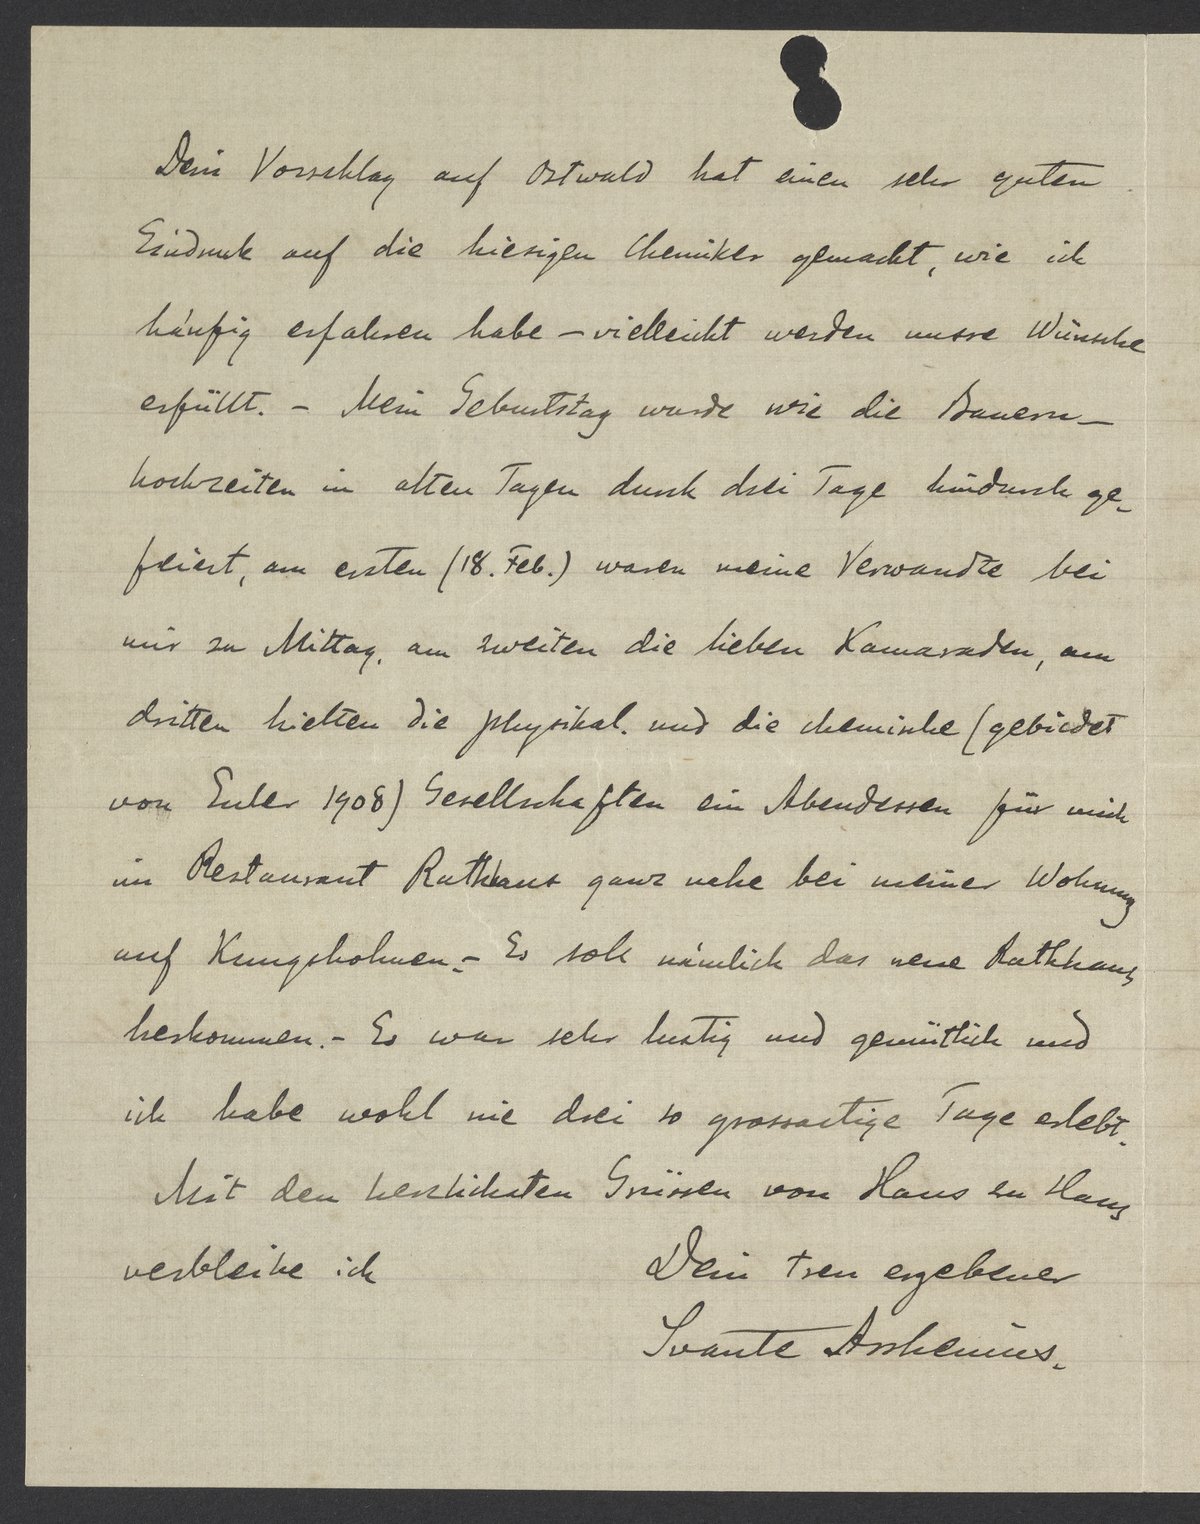 Dein Vorschlag auf Ostwald hat einen sehr guten
Eindruck auf die hiesigen Chemiker gemacht, wie ich
häufig erfahren habe – vielleicht werden unsre Wünsche
erfüllt. – Mein Geburtstag wurde wie die Bauern–
hochzeiten in alten Tagen durch drei Tage hindurch ge-
feiert, am ersten (18. Feb.) waren meine Verwandte bei
mir zu Mittag, am zweiten die lieben Kamaraden, am
dritten hielten die physikal. und die chemische (gebildet
von Euler 1908) Gesellschaften ein Abendessen für mich
im Restaurant Rathhaus ganz nahe bei meiner Wohnung
auf Kungsholmen. – Es soll nämlich das neue Rathhaus
herkommen. – Es war sehr lustig und gemütlich und
ich habe wohl nie drei so grossartige Tage erlebt.
Mit den herzlichsten Grüssen von Haus zu Haus
verbleibe ich Dein treu ergebener
Svante Arrhenius.